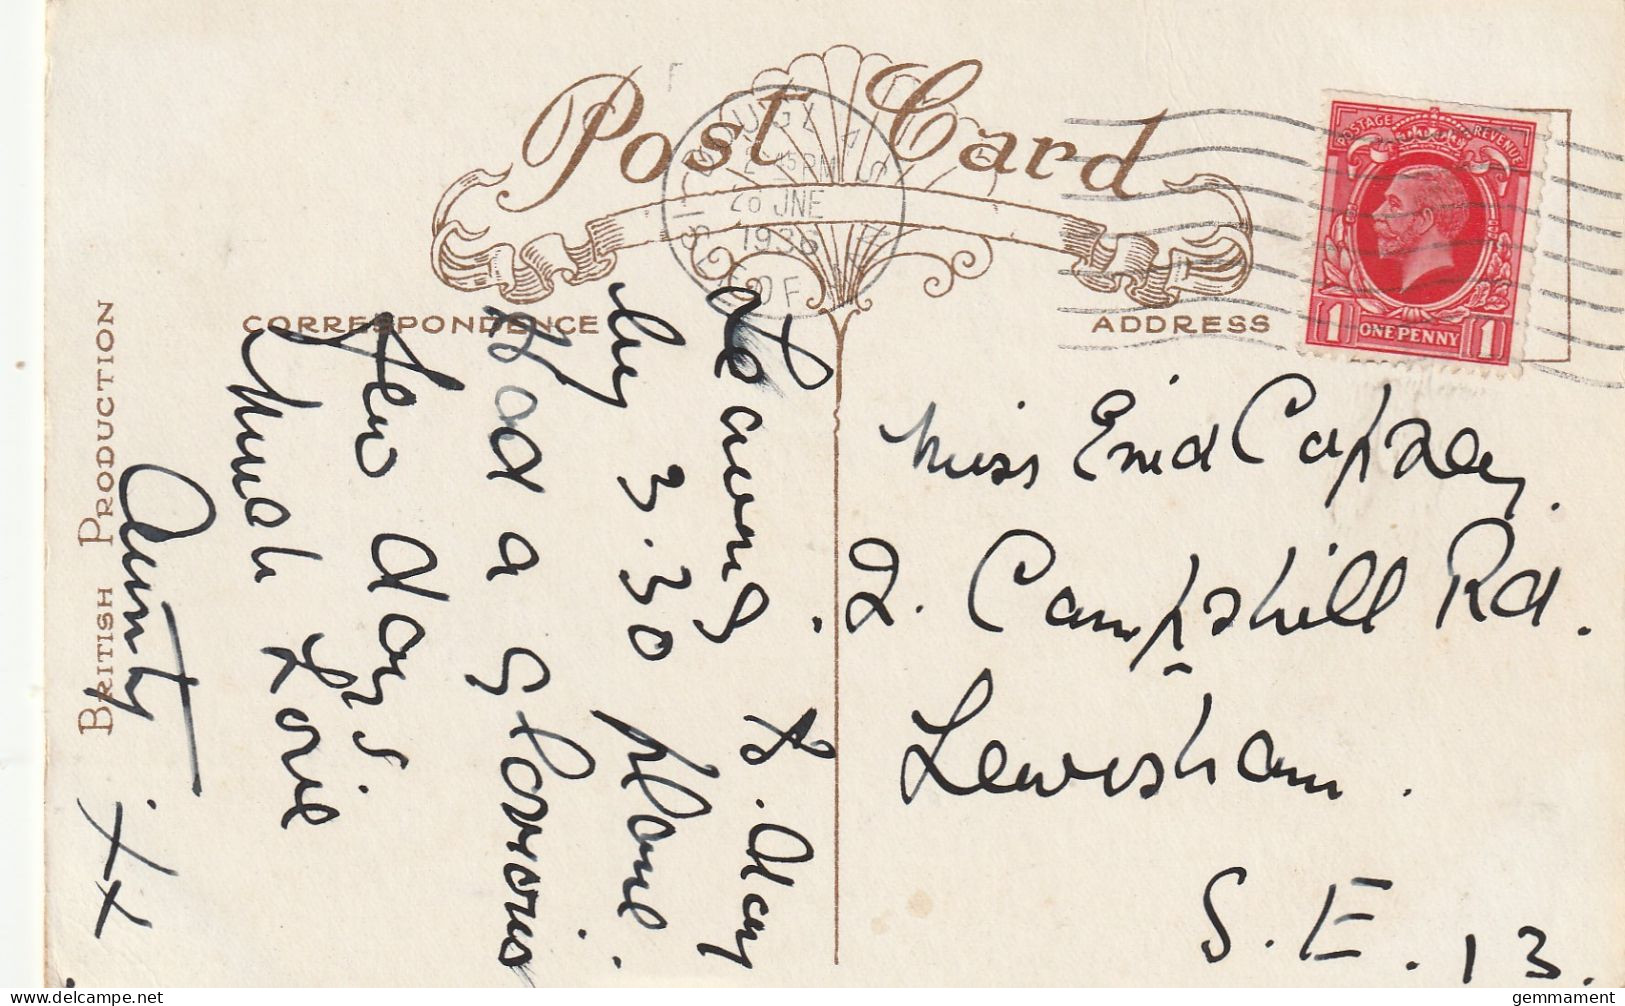 Post Card
CORRESPONDENCE
ADDRESS
BRITISH PRODUCTION
DOUGLAS
2 45 PM
26 JNE
1936
ISLE OF MAN
POSTAGE REVENUE
1 ONE PENNY 1
Leaving to.day
by 3.30 plane.
Had a glorious
few days
Much Love
Aunty
xx
Miss Enid Copsey.
2. Campshill Rd.
Lewisham.
S.E.13.
gemmament